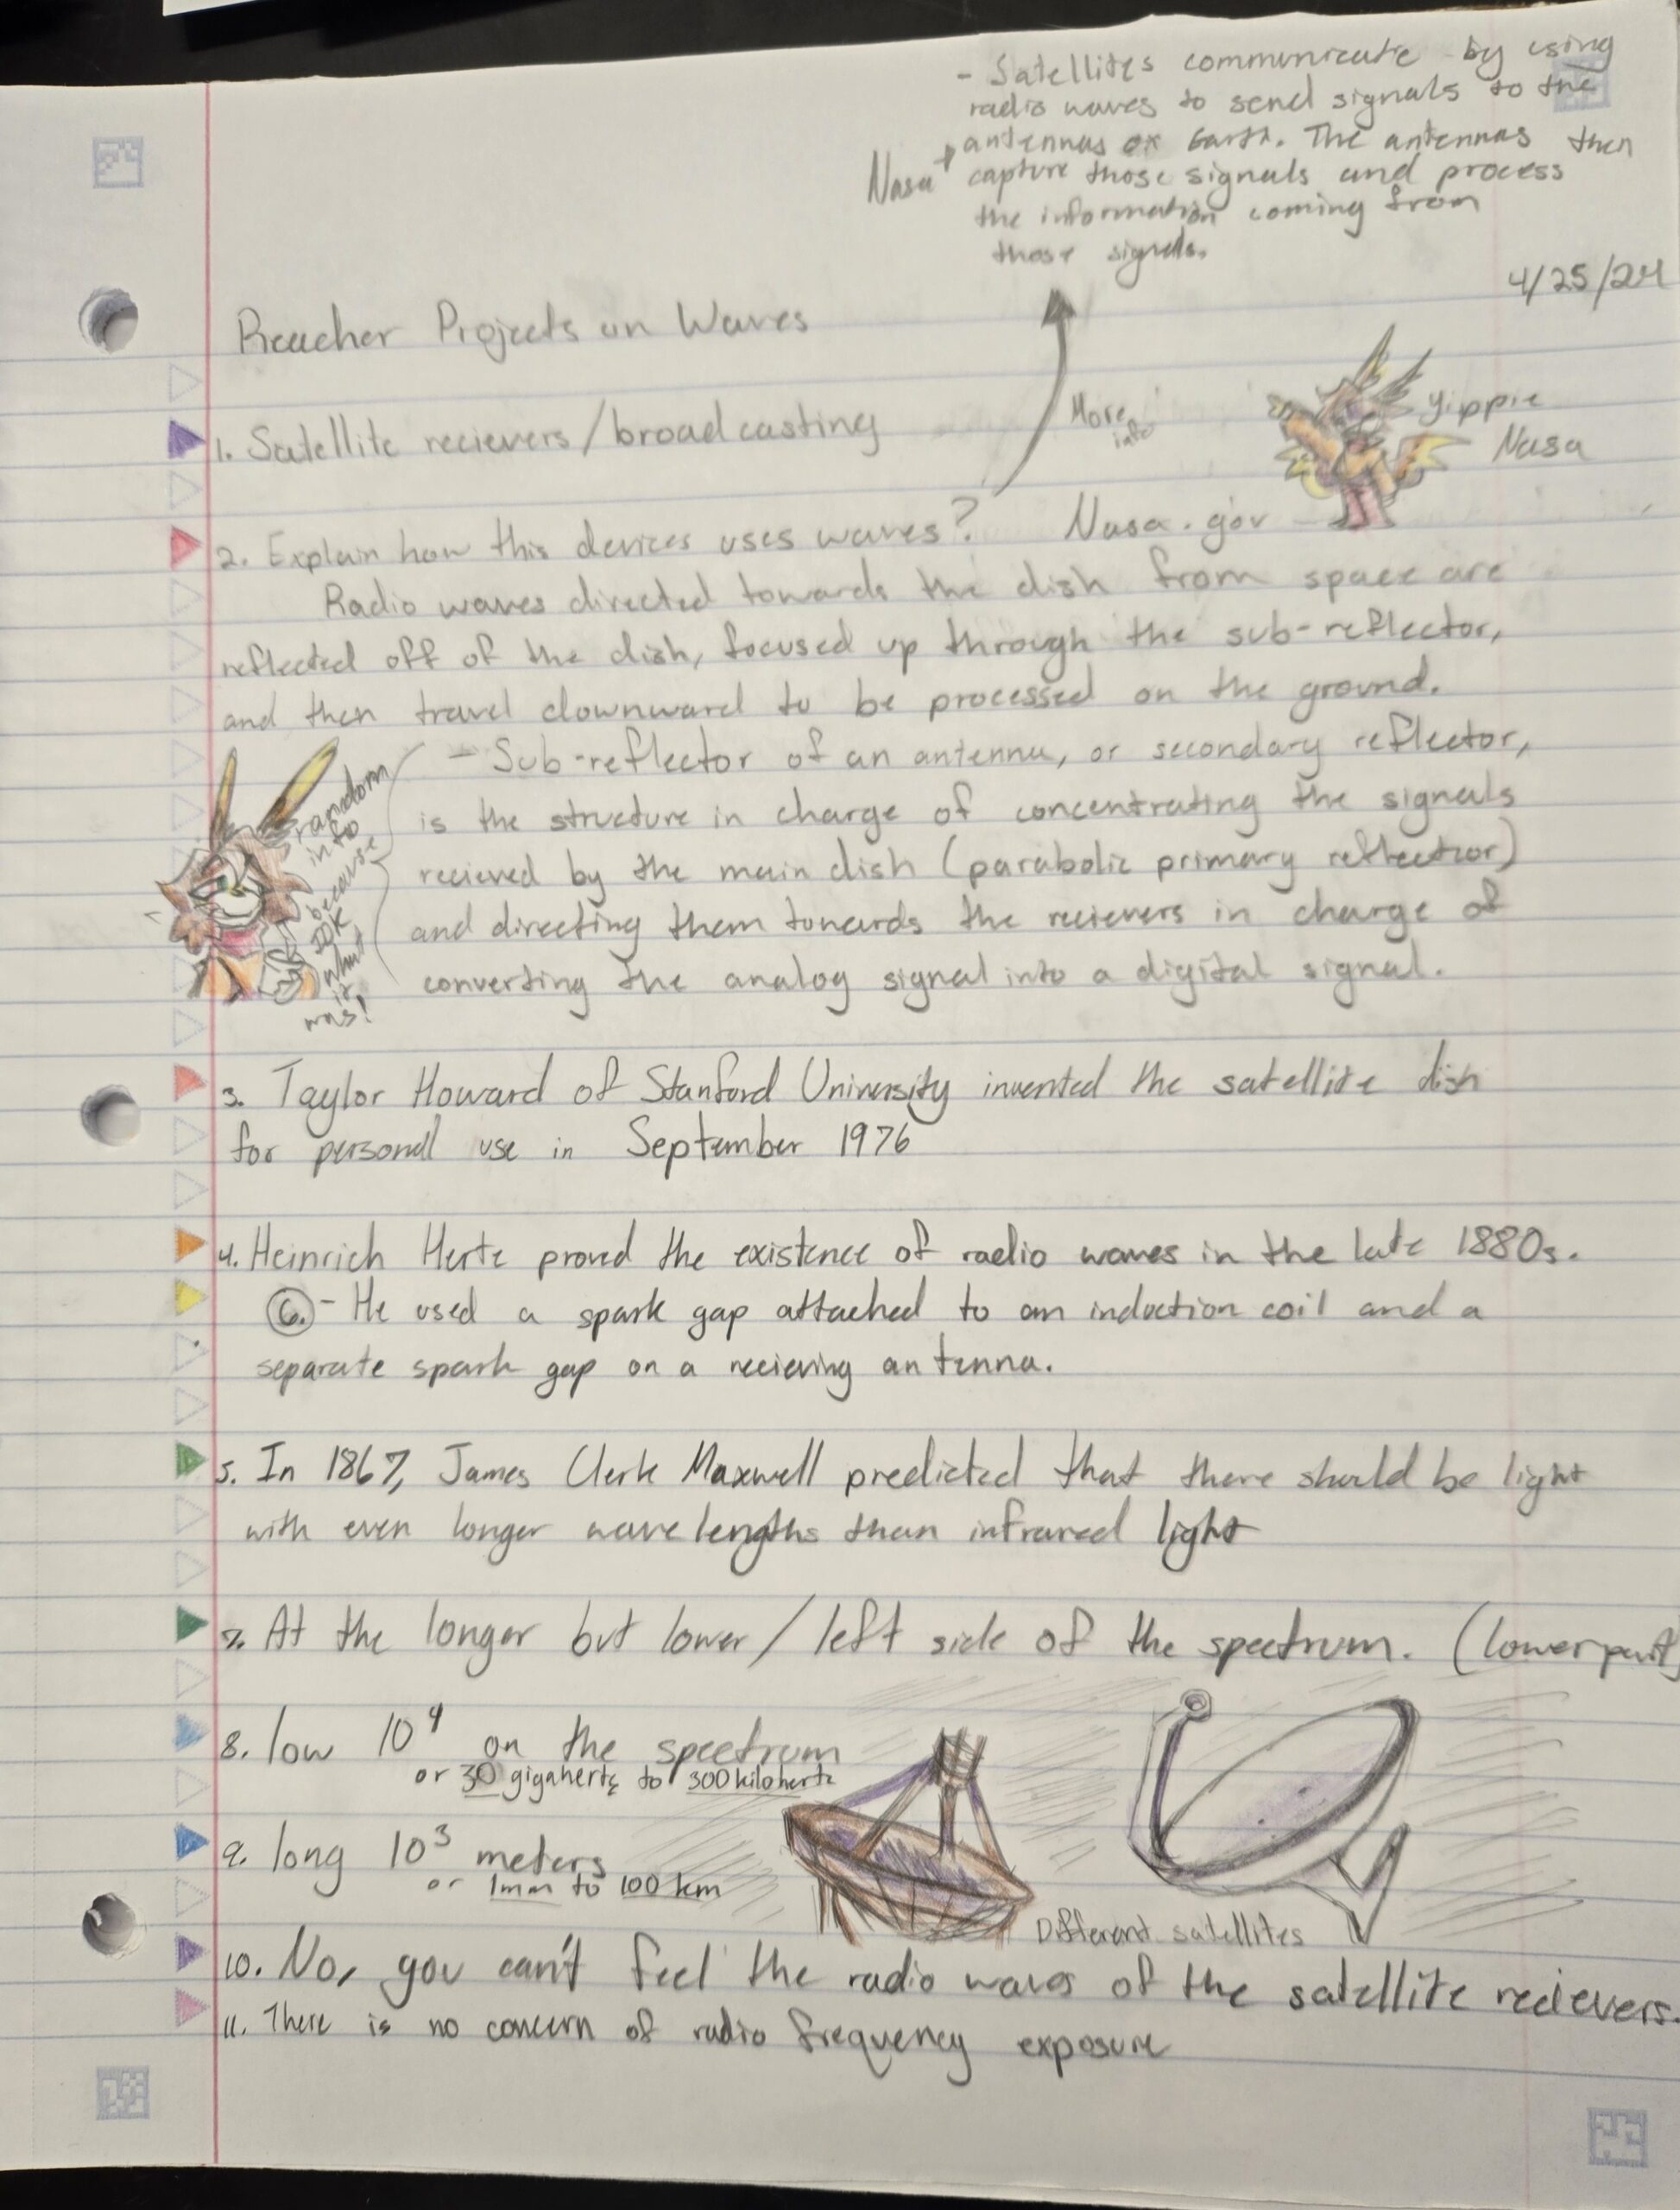 - Satellites communicate by using
radio waves to send signals to the
antennas on Earth. The antennas then
Nasa capture those signals and process
the information coming from
those signals.
4/25/24
Reacher Projects on Waves
More
info
Yippie
Nasa
1. Satellite recievers/broadcasting
2. Explain how this devices uses waves? Nasa.gov
Radio waves directed towards the dish from space are
reflected off of the dish, focused up through the sub-reflector,
and then travel downward to be processed on the ground.
- Sub-reflector of an antenna, or secondary reflector,
is the structure in charge of concentrating the signals
recieved by the main dish (parabolic primary reflector)
and directing them towards the recievers in charge of
converting the analog signal into a digital signal.
random
info
because
IDK
what
it
was!
3. Taylor Howard of Stanford University invented the satellite dish
for personal use in September 1976
4. Heinrich Hertz proved the existence of radio waves in the late 1880s.
6. - He used a spark gap attached to an induction coil and a
separate spark gap on a recieving antenna.
5. In 1867, James Clerk Maxwell predicted that there should be light
with even longer wavelengths than infrared light
7. At the longer but lower/left side of the spectrum. (lower part)
8. low 10⁴ on the spectrum
or 30 gigahertz to 300 kilohertz
9. long 10³ meters
or 1mm to 100 km
Different satellites
10. No, you can't feel the radio waves of the satellite recievers.
11. There is no concern of radio frequency exposure